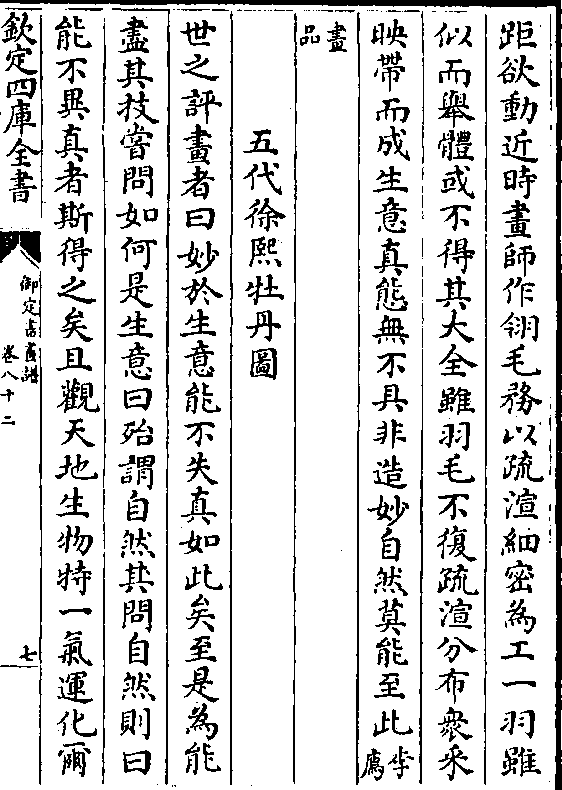 距欲動近時畫師作翎毛務以疏渲細密為工一羽雖
似而舉體或不得其大全雖羽毛不復疏渲分布衆采
映帶而成生意真態無不具非造妙自然莫能至此李廌
畫品
五代徐熙牡丹圖
世之評畫者曰妙於生意能不失真如此矣至是為能
盡其技嘗問如何是生意曰殆謂自然其問自然則曰
能不異真者斯得之矣且觀天地生物特一氣運化爾
欽定四庫全書
御定書畫譜
卷八十二
七